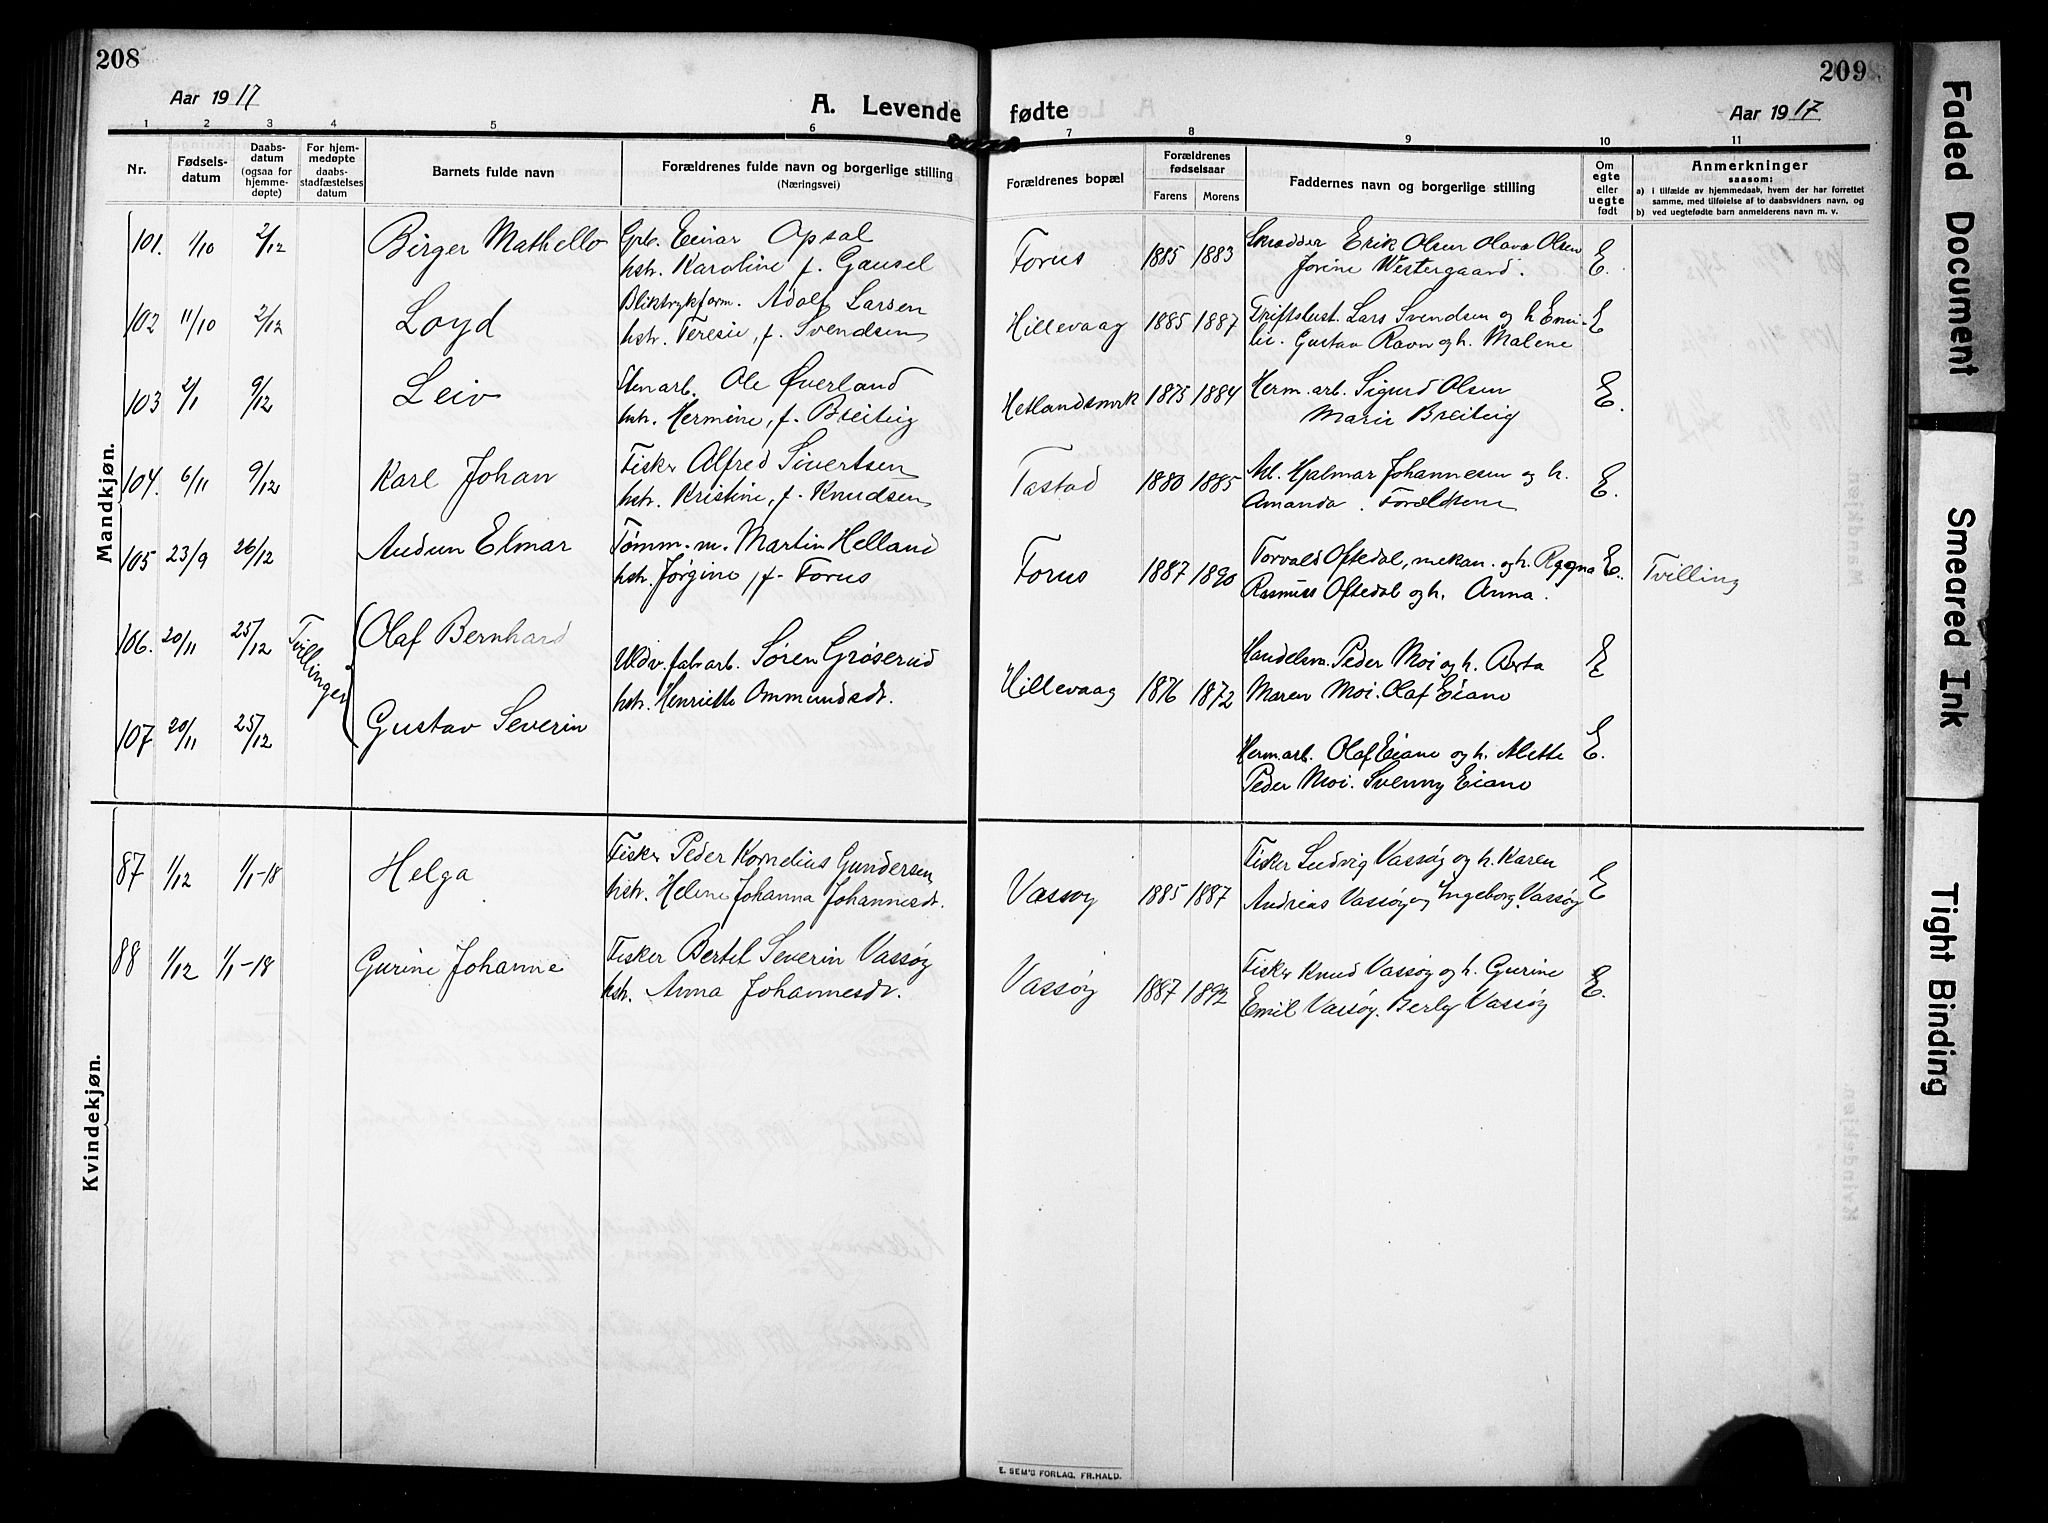 208
Aar 1917
A. Levende
1 2 3 4 5 6
Nr.
Fødsels-
datum
Daabs-
datum
(ogsaa for
hjemme-
døpte)
For hjem-
medøpte
daabs-
stadfæstelses
datum
Barnets fulde navn
Forældrenes fulde navn og borgerlige stilling
(Næringsvei)
Mandkjøn.
101. 1/10 2/12 Birger Mathello Grb. Einar Opsal
hstr. Karoline f. Gausel
102 11/10 2/12 Loyd Bliktrykform. Adolf Larsen
hstr. Teresie, f. Svendsen
103 2/1 9/12 Leiv Stenarb. Ole Øverland
hstr. Hermine, f. Breiteig
104. 6/11 9/12 Karl Johan Fisker Alfred Sivertsen
hstr. Kristine, f. Knudsen
105 23/9 26/12 Audun Elmar Tømm.m. Martin Helland
hstr. Jørgine, f. Forus
106. 20/11 25/12 Tvillinger Olaf Bernhard
Uldv.fabr.arb. Søren Grøserud
hstr. Henriette Ommundsdt.
107 20/11 25/12 Gustav Severin
Kvindekjøn.
87 1/12 1/1-18 Helga Fisker Peder Kornelius Gundersen
hstr. Helene Johanna Johannesdt.
88 1/12 1/1-18 Gurine Johanne Fisker Bertel Severin Vassøy
hstr. Anna Johannesdt.
209
fødte
Aar 1917
7 8 9 10 11
Forældrenes bopæl
Forældrenes
fødselsaar
Farens Morens
Faddernes navn og borgerlige stilling
Om
egte
eller
uegte
født
Anmerkninger
saasom:
a) i tilfælde av hjemmedaab, hvem der har forrettet
samme, med tilføielse av to daabsvidners navn, og
b) ved uegtefødte barn anmelderens navn m. v.
Forus 1885 1883 Skrædder Erik Olsen Olava Olsen E.
Jorine Westergaard.
Hillevaag 1885 1887 Driftsbest. Lars Svendsen og h. Emi- E
lie. Gustav Ravn og h. Malene
Hetlandsmrk 1875 1884 Herm. arb. Sigurd Olsen E.
Marie Breiteig
Tastad 1880 1885 Hjalmar Johannesen og h. E.
Amanda. Forældrene
Forus 1887 1890 Torvald Oftedal, mekan. og h. Ragna E. Tvilling
Rasmus Oftedal og h. Anna.
Hillevaag 1876 1872 Handelsm. Peder Moi og h. Berta E
Maren Moi. Olaf Eiane
Herm.arb. Olaf Eiane og h. Mette E.
Peder Moi. Svenny Eiane
Vassoy 1885 1887 Fisker Ludvig Vassøy og h. Karen E
Andreas Vassøy og Ingeborg Vassøy
Vassøy 1887 1892 Fisker Knud Vassøy og h. Gurine E.
Emil Vassøy. Berly Vassøy
E. SEM'S FORLAG, FR.HALD.
Faded Document
Smeared Ink
Tight Binding